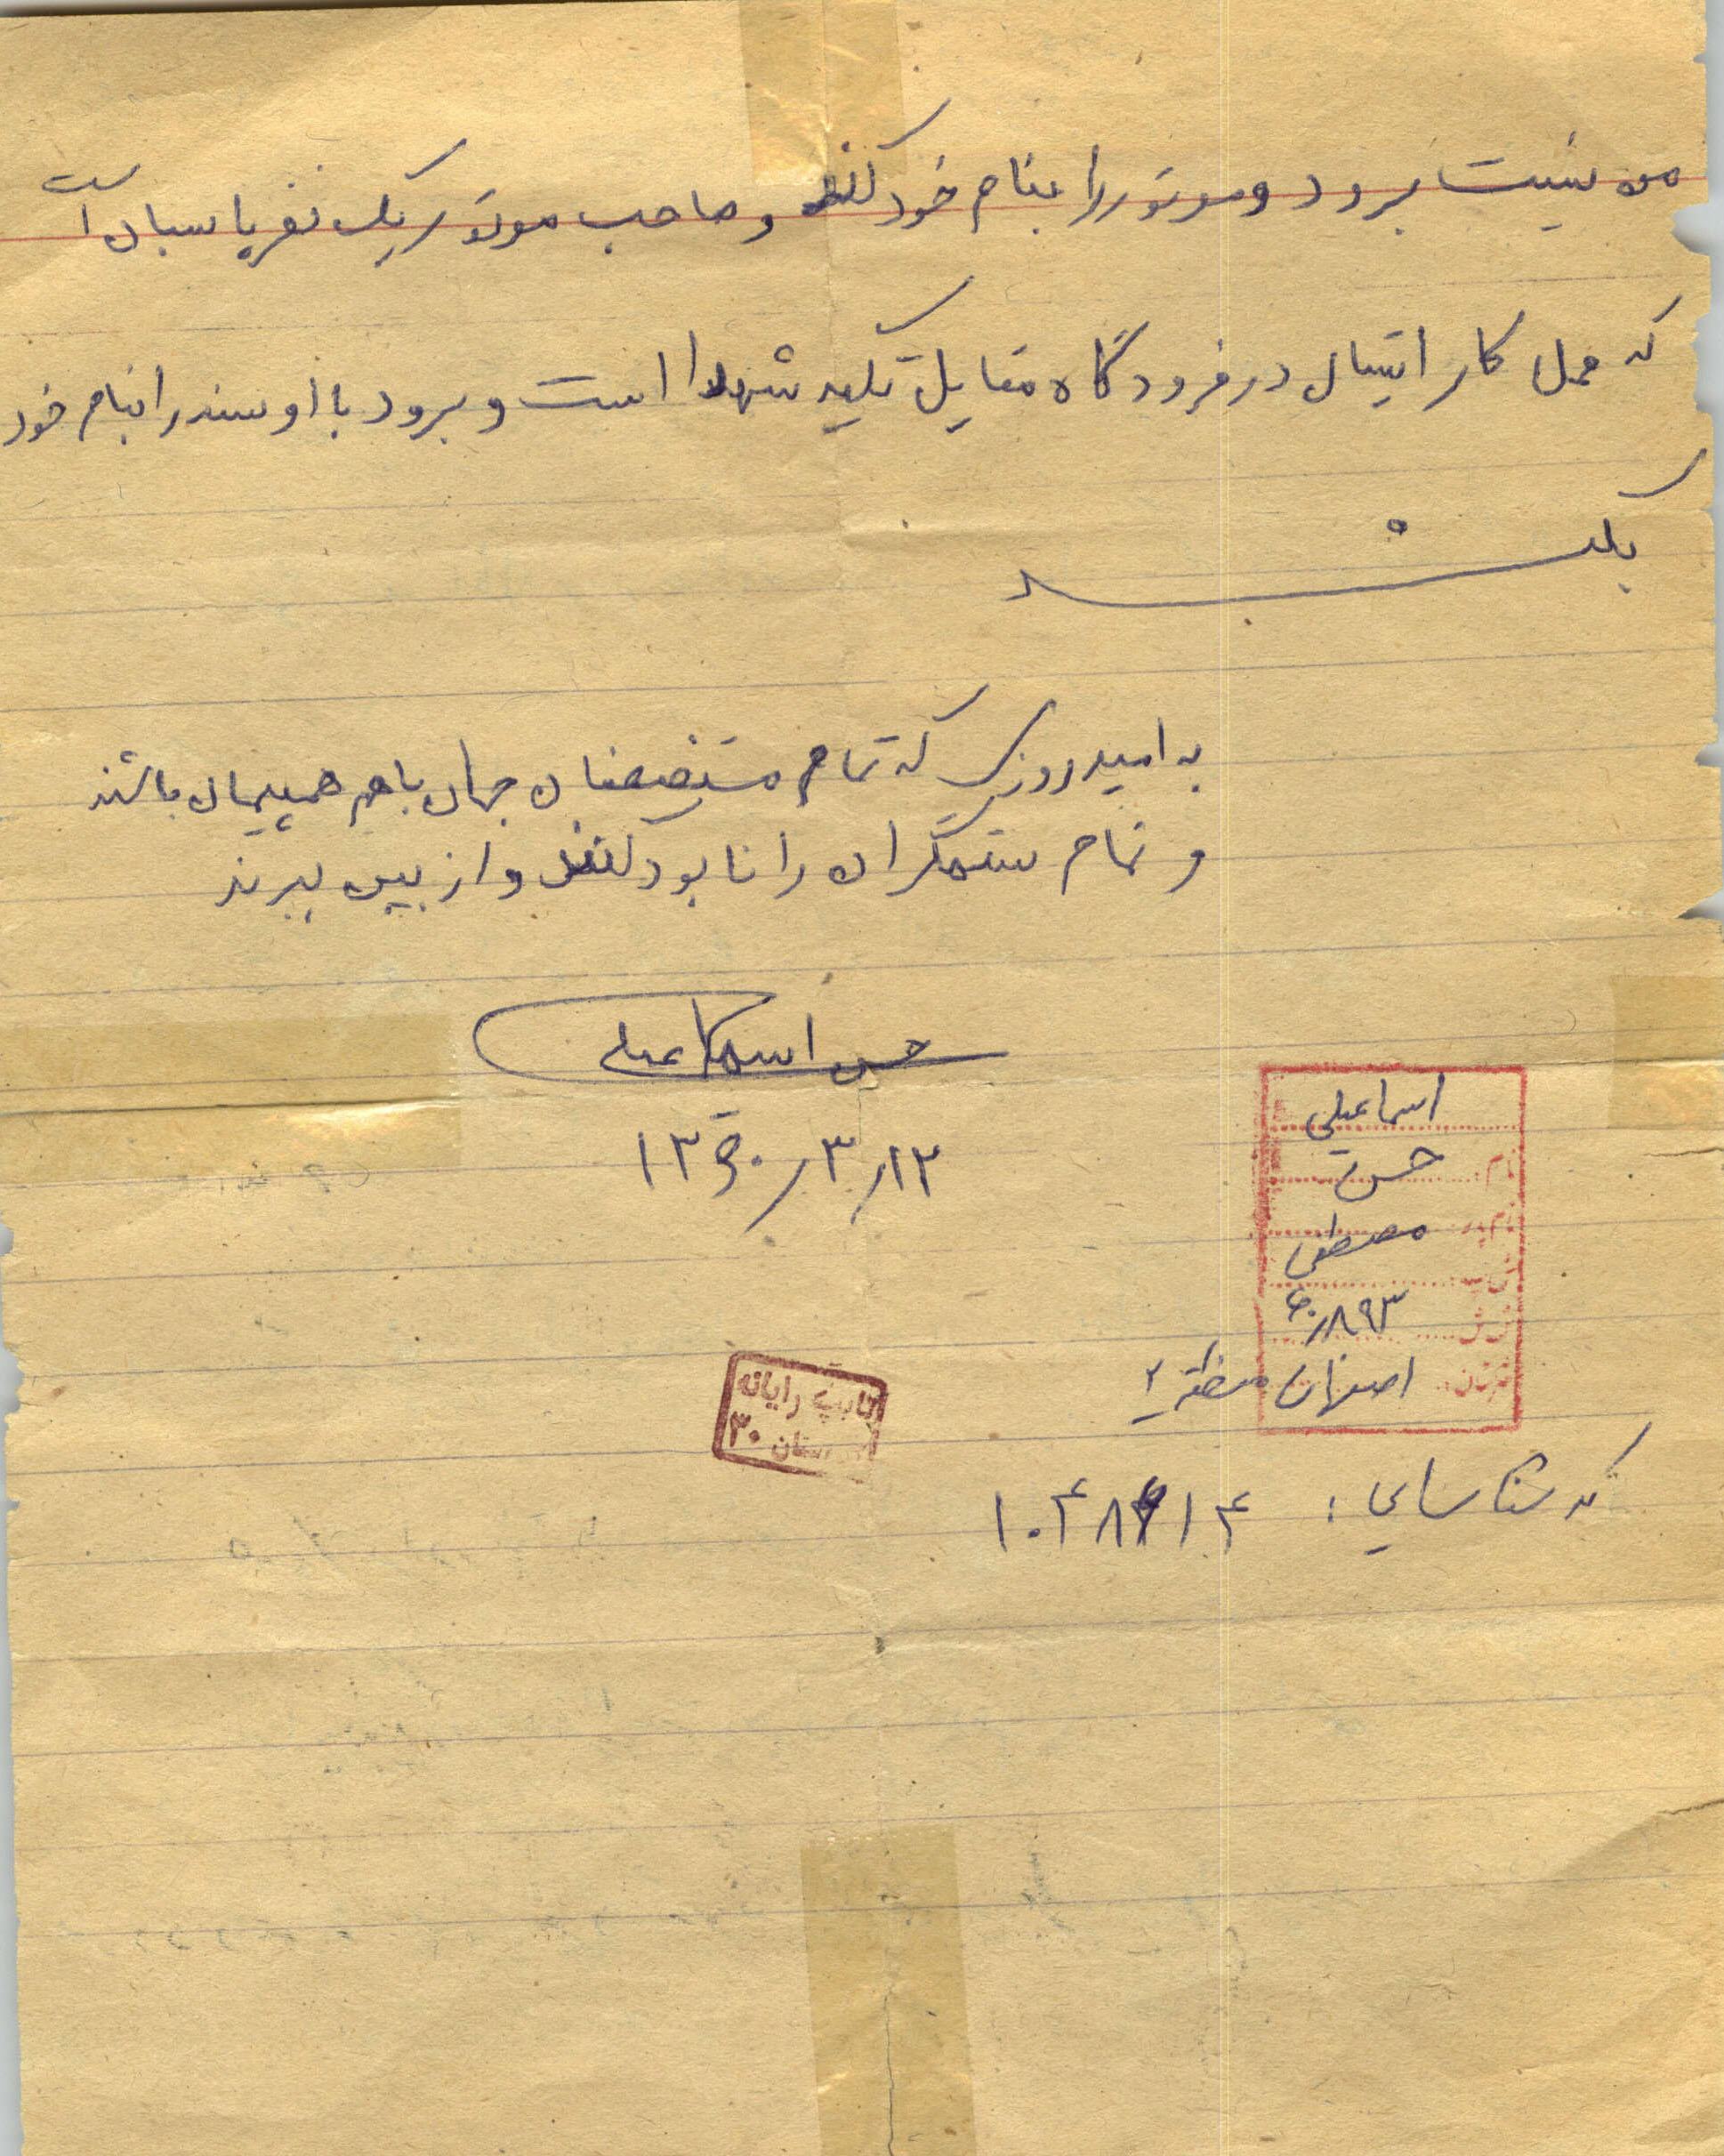 من نیست برود و موتور را بنام خود کند و صاحب موتور یک نفر پاسبان است
که محل کار ایشان در فرودگاه مقابل تکیه شهدا است و برود با او سند را بنام خود
بکند
به امید روزی که تمام مستضعفان جهان با هم همپیمان باشند
و تمام ستمگران را نابود کنند و از بین ببرند
حسن اسماعیلی
۱۳۶۰/۳/۱۲
اسماعیلی
نام: حسن
نام پدر: مصطفی
ش پ: ۶۰/۸۹۳
اصفهان منطقه ۲
تایپ رایانه
۳۰
کد شناسایی: ۱۰۴۸۲۱۴